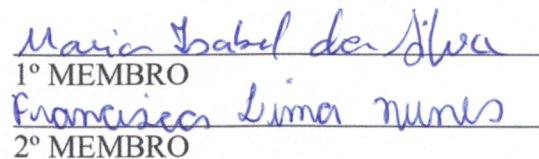 Maria Isabel da Silva
1º MEMBRO
Francisca Lima Nunes
2º MEMBRO